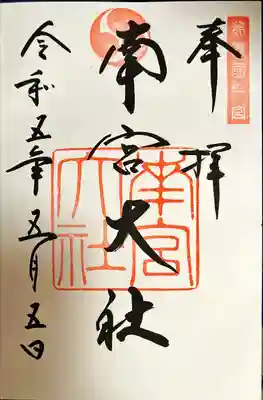 奉拝
南宮大社
南宮
大社
令和五年五月五日